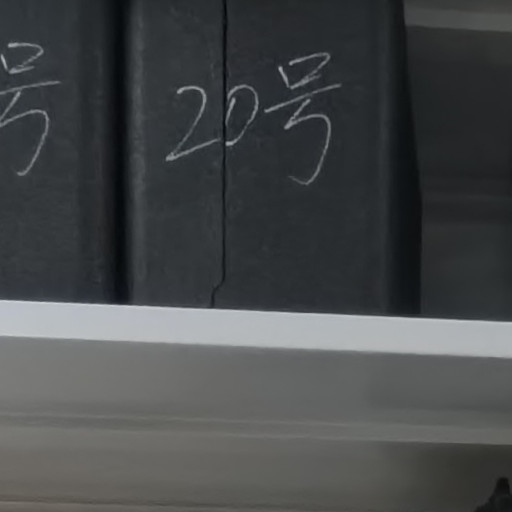 号
20号